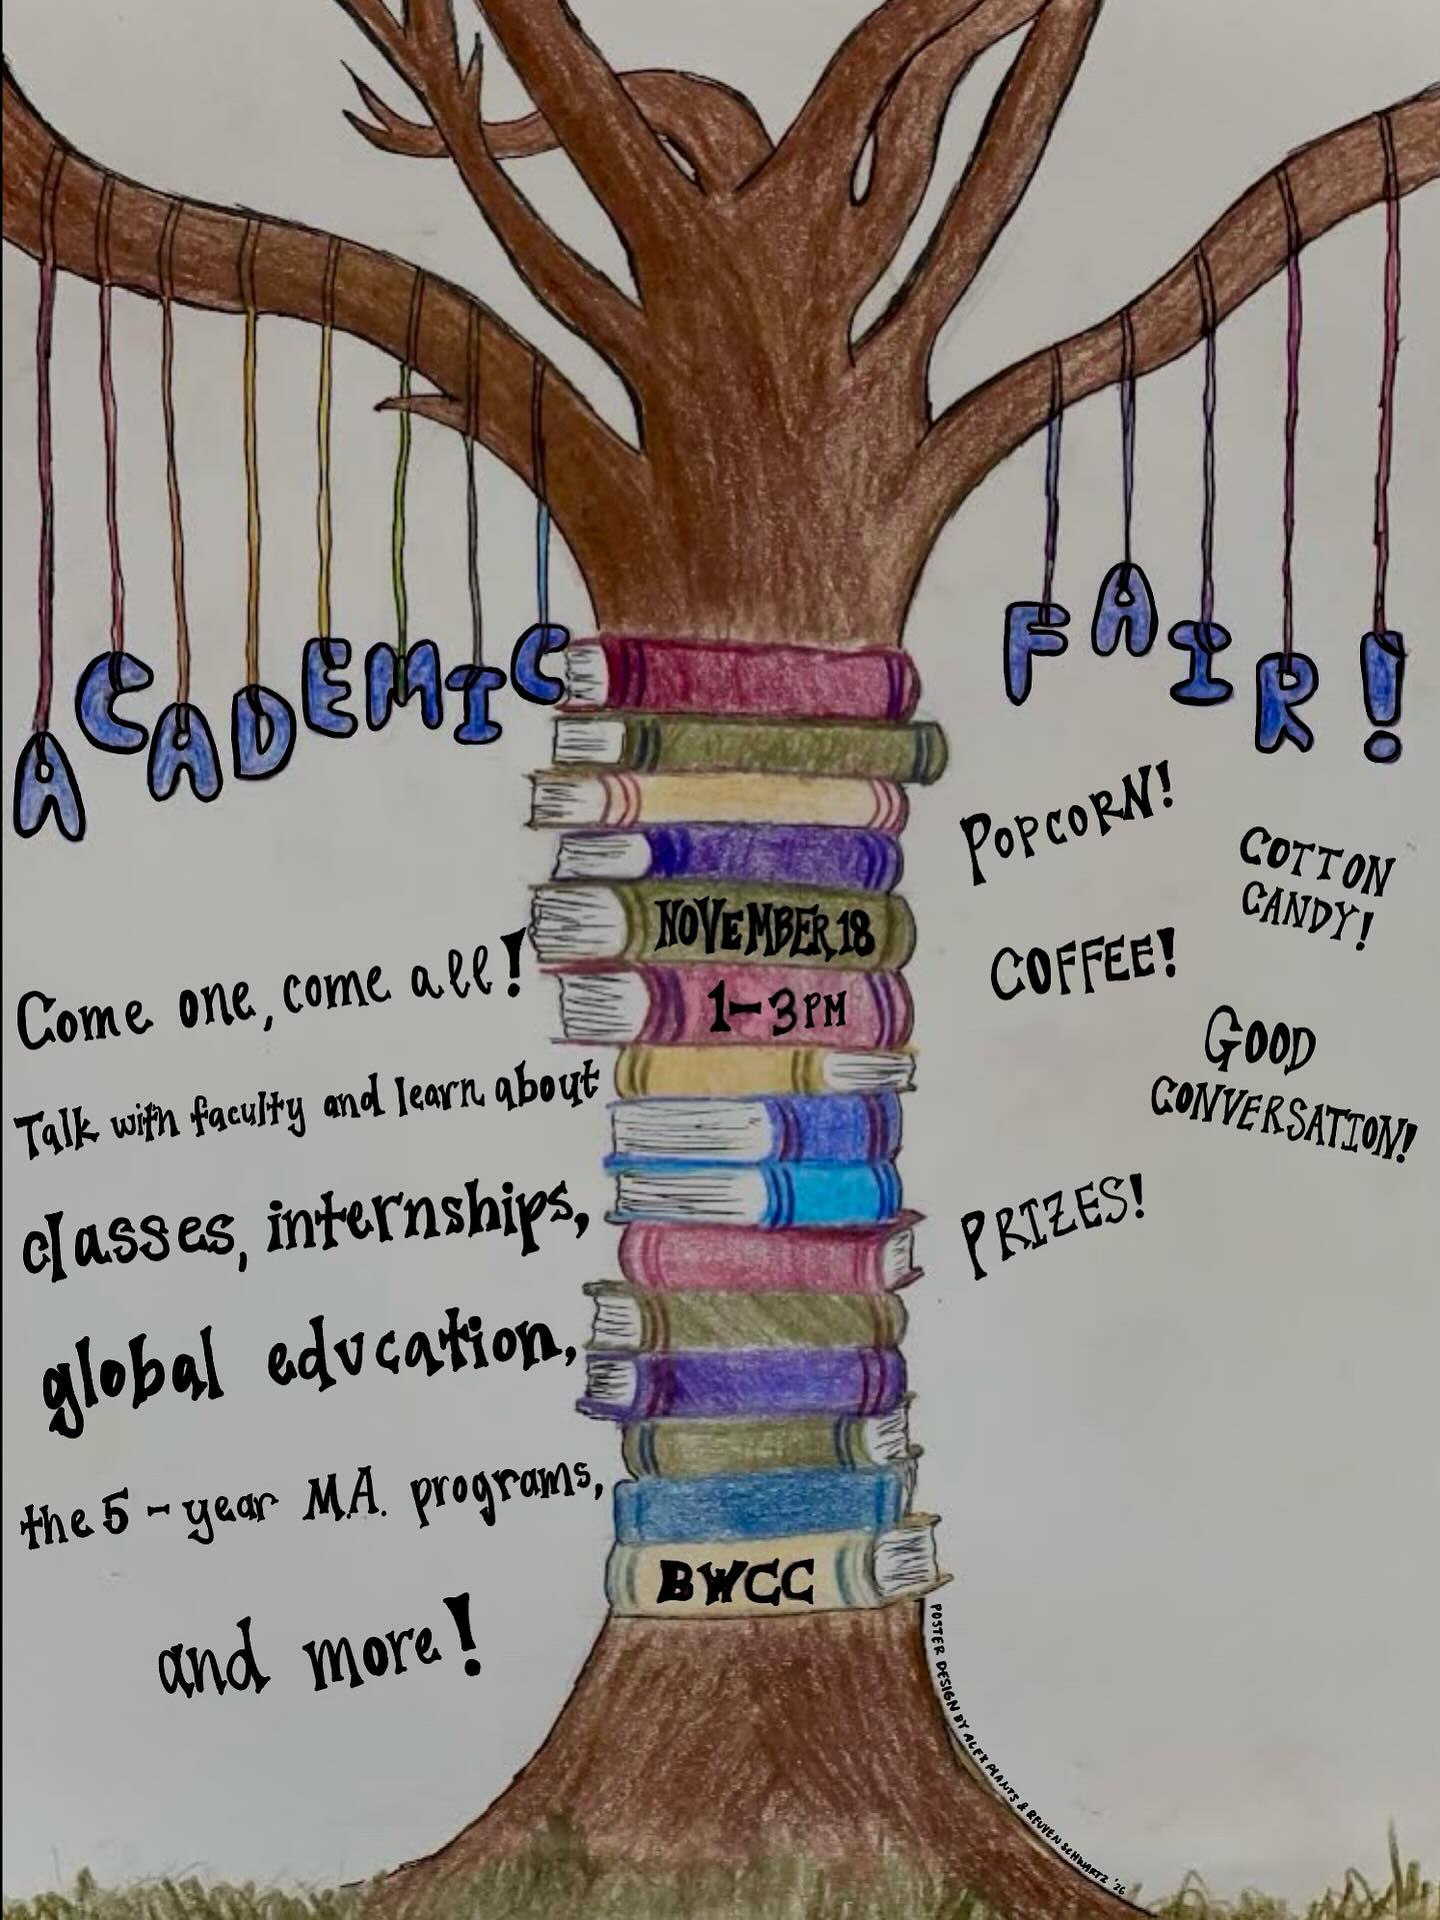 ACADEMIC FAIR!
Come one, come all!
Talk with faculty and learn about
classes, internships,
global education,
the 5-year M.A. programs,
and more!
NOVEMBER 18
1-3PM
BWCC
POPCORN!
COTTON
CANDY!
COFFEE!
GOOD
CONVERSATION!
PRIZES!
POSTER DESIGN BY ALEX PLANTS & REUVEN SCHWARTZ '26